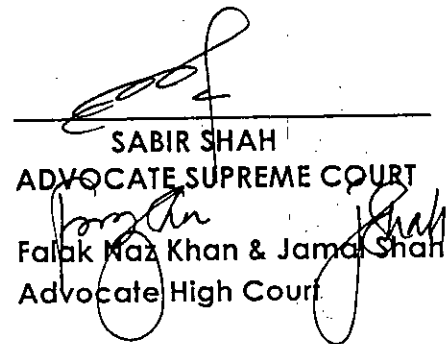 SABIR SHAH
ADVOCATE SUPREME COURT
Falak Naz Khan & Jamal Shah
Advocate High Court